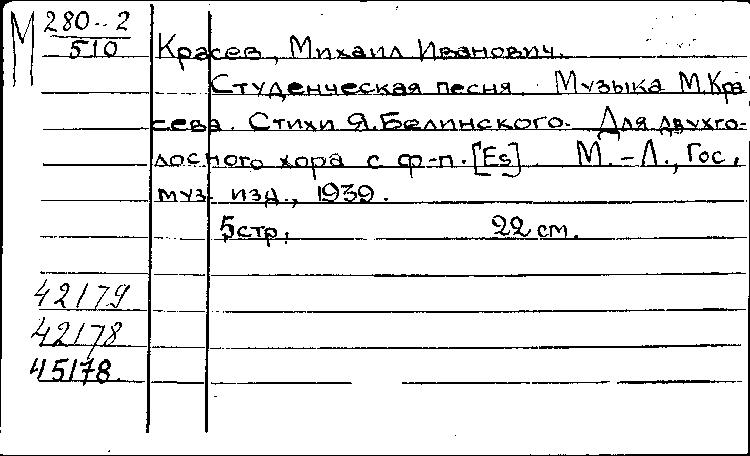 М 280-2
510
Красев, Михаил Иванович.
Студенческая песня. Музыка М.Кра
сева. Стихи Я.Белинского. Для двухго-
лосного хора с ф-п. [Es]. М.-Л., Гос.
муз. изд., 1939.
5стр; 22 см.
42179
42178
45178.